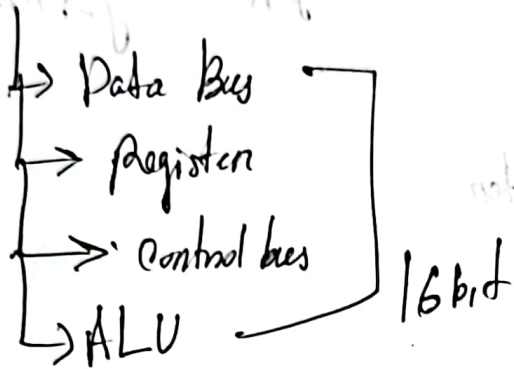 Data Bus
Register
Control bus
16 bit
ALU